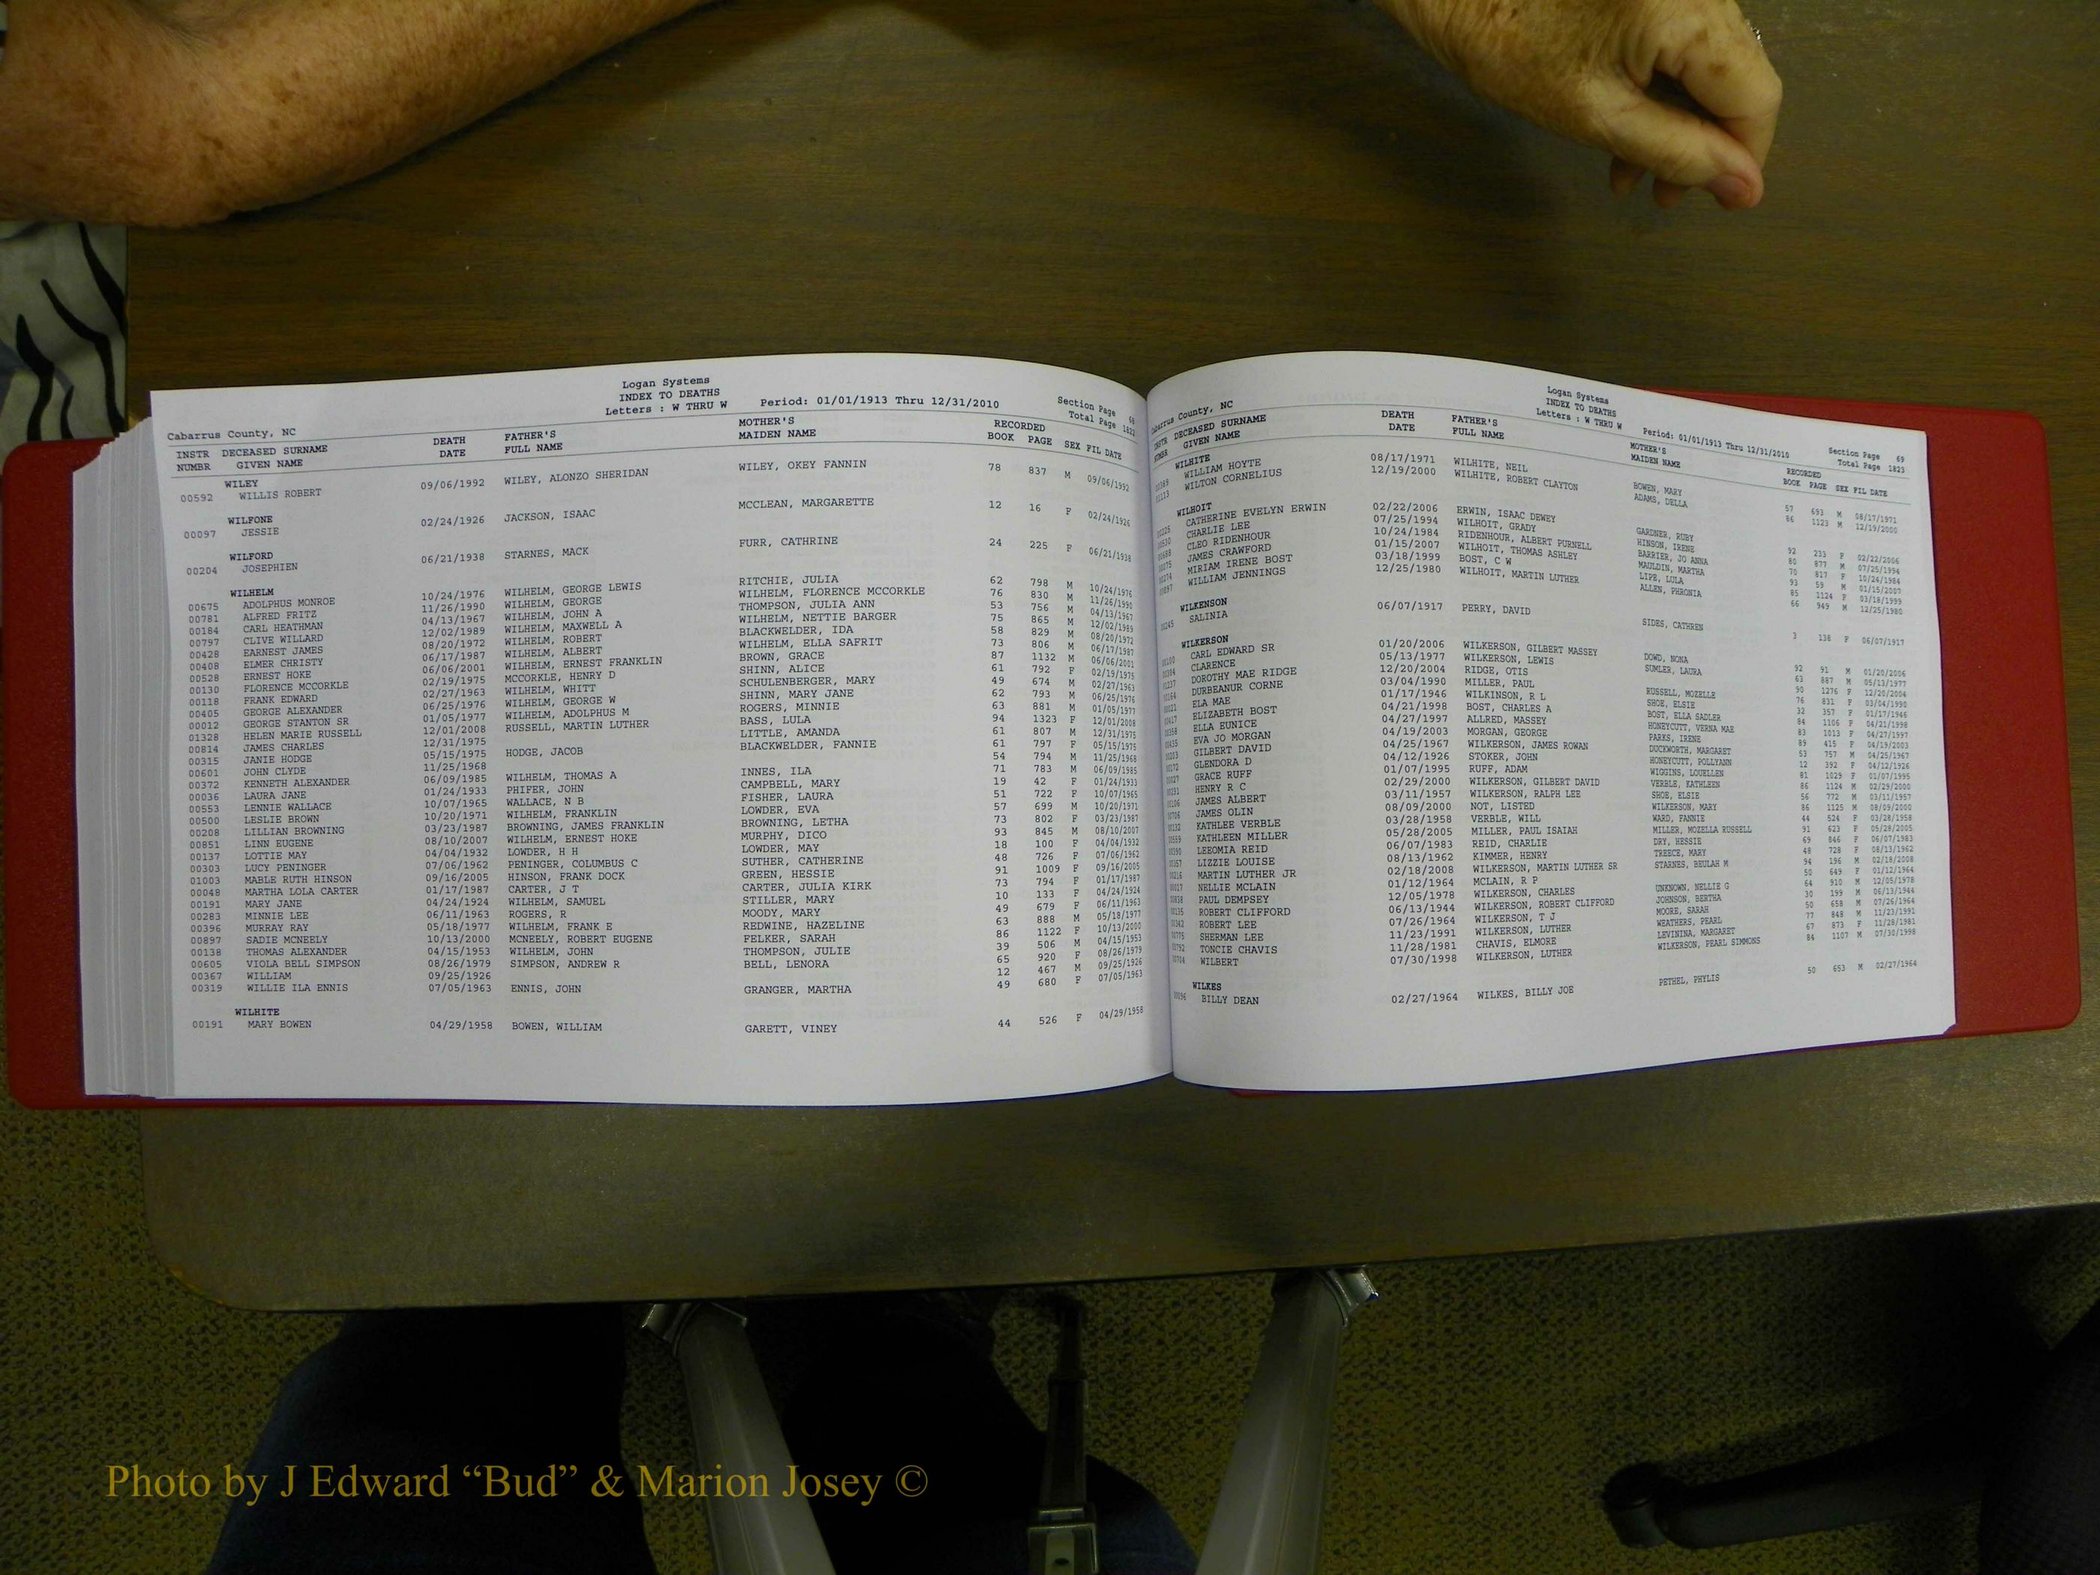 Logan Systems
INDEX TO DEATHS
Letters : W THRU W Period: 01/01/1913 Thru 12/31/2010 Section Page 68
Cabarrus County, NC Total Page 1823
INSTR DECEASED SURNAME DEATH FATHER'S MOTHER'S RECORDED
NUMBR GIVEN NAME DATE FULL NAME MAIDEN NAME BOOK PAGE SEX FIL DATE
WILEY
00592 WILLIS ROBERT 09/06/1992 WILEY, ALONZO SHERIDAN WILEY, OKEY FANNIN 78 837 M 09/06/1992
WILFONE
00097 JESSIE 02/24/1926 JACKSON, ISAAC MCCLEAN, MARGARETTE 12 16 F 02/24/1926
WILFORD
00204 JOSEPHIEN 06/21/1938 STARNES, MACK FURR, CATHRINE 24 225 F 06/21/1938
WILHELM
00675 ADOLPHUS MONROE 10/24/1976 WILHELM, GEORGE LEWIS RITCHIE, JULIA 62 798 M 10/24/1976
00781 ALFRED FRITZ 11/26/1990 WILHELM, GEORGE WILHELM, FLORENCE MCCORKLE 76 830 M 11/26/1990
00184 CARL HEATHMAN 04/13/1967 WILHELM, JOHN A THOMPSON, JULIA ANN 53 756 M 04/13/1967
00797 CLIVE WILLARD 12/02/1989 WILHELM, MAXWELL A WILHELM, NETTIE BARGER 75 865 M 12/02/1989
00428 EARNEST JAMES 08/20/1972 WILHELM, ROBERT BLACKWELDER, IDA 58 829 M 08/20/1972
00408 ELMER CHRISTY 06/17/1987 WILHELM, ALBERT WILHELM, ELLA SAFRIT 73 806 M 06/17/1987
00528 ERNEST HOKE 06/06/2001 WILHELM, ERNEST FRANKLIN BROWN, GRACE 87 1132 M 06/06/2001
00130 FLORENCE MCCORKLE 02/19/1975 MCCORKLE, HENRY D SHINN, ALICE 61 792 F 02/19/1975
00118 FRANK EDWARD 02/27/1963 WILHELM, WHITT SCHULENBERGER, MARY 49 674 M 02/27/1963
00405 GEORGE ALEXANDER 06/25/1976 WILHELM, GEORGE W SHINN, MARY JANE 62 793 M 06/25/1976
00012 GEORGE STANTON SR 01/05/1977 WILHELM, ADOLPHUS M ROGERS, MINNIE 63 881 M 01/05/1977
01328 HELEN MARIE RUSSELL 12/01/2008 RUSSELL, MARTIN LUTHER BASS, LULA 94 1323 F 12/01/2008
00814 JAMES CHARLES 12/31/1975 LITTLE, AMANDA 61 807 M 12/31/1975
00315 JANIE HODGE 05/15/1975 HODGE, JACOB BLACKWELDER, FANNIE 61 797 F 05/15/1975
00601 JOHN CLYDE 11/25/1968 54 794 M 11/25/1968
00372 KENNETH ALEXANDER 06/09/1985 WILHELM, THOMAS A INNES, ILA 71 783 M 06/09/1985
00036 LAURA JANE 01/24/1933 PHIFER, JOHN CAMPBELL, MARY 19 42 F 01/24/1933
00553 LENNIE WALLACE 10/07/1965 WALLACE, N B FISHER, LAURA 51 722 F 10/07/1965
00500 LESLIE BROWN 10/20/1971 WILHELM, FRANKLIN LOWDER, EVA 57 699 M 10/20/1971
00208 LILLIAN BROWNING 03/23/1987 BROWNING, JAMES FRANKLIN BROWNING, LETHA 73 802 F 03/23/1987
00851 LINN EUGENE 08/10/2007 WILHELM, ERNEST HOKE MURPHY, DICO 93 845 M 08/10/2007
00137 LOTTIE MAY 04/04/1932 LOWDER, H H LOWDER, MAY 18 100 F 04/04/1932
00303 LUCY PENINGER 07/06/1962 PENINGER, COLUMBUS C SUTHER, CATHERINE 48 726 F 07/06/1962
01003 MABLE RUTH HINSON 09/16/2005 HINSON, FRANK DOCK GREEN, HESSIE 91 1009 F 09/16/2005
00048 MARTHA LOLA CARTER 01/17/1987 CARTER, J T CARTER, JULIA KIRK 73 794 F 01/17/1987
00191 MARY JANE 04/24/1924 WILHELM, SAMUEL STILLER, MARY 10 133 F 04/24/1924
00283 MINNIE LEE 06/11/1963 ROGERS, R MOODY, MARY 49 679 F 06/11/1963
00396 MURRAY RAY 05/18/1977 WILHELM, FRANK E REDWINE, HAZELINE 63 888 M 05/18/1977
00897 SADIE MCNEELY 10/13/2000 MCNEELY, ROBERT EUGENE FELKER, SARAH 86 1122 F 10/13/2000
00138 THOMAS ALEXANDER 04/15/1953 WILHELM, JOHN THOMPSON, JULIE 39 506 M 04/15/1953
00605 VIOLA BELL SIMPSON 08/26/1979 SIMPSON, ANDREW R BELL, LENORA 65 920 F 08/26/1979
00367 WILLIAM 09/25/1926 12 467 M 09/25/1926
00319 WILLIE ILA ENNIS 07/05/1963 ENNIS, JOHN GRANGER, MARTHA 49 680 F 07/05/1963
WILHITE
00191 MARY BOWEN 04/29/1958 BOWEN, WILLIAM GARETT, VINEY 44 526 F 04/29/1958
Logan Systems
INDEX TO DEATHS
Letters : W THRU W Period: 01/01/1913 Thru 12/31/2010 Section Page 69
Cabarrus County, NC Total Page 1823
INSTR DECEASED SURNAME DEATH FATHER'S MOTHER'S RECORDED
NUMBR GIVEN NAME DATE FULL NAME MAIDEN NAME BOOK PAGE SEX FIL DATE
WILHITE
WILLIAM HOYTE 08/17/1971 WILHITE, NEIL BOWEN, MARY 57 693 M 08/17/1971
WILTON CORNELIUS 12/19/2000 WILHITE, ROBERT CLAYTON ADAMS, DELLA 86 1123 M 12/19/2000
WILHOIT
CATHERINE EVELYN ERWIN 02/22/2006 ERWIN, ISAAC DEWEY GARDNER, RUBY 92 233 F 02/22/2006
CHARLIE LEE 07/25/1994 WILHOIT, GRADY HINSON, IRENE 80 877 M 07/25/1994
CLEO RIDENHOUR 10/24/1984 RIDENHOUR, ALBERT PURNELL BARRIER, JO ANNA 70 817 F 10/24/1984
JAMES CRAWFORD 01/15/2007 WILHOIT, THOMAS ASHLEY MAULDIN, MARTHA 93 59 M 01/15/2007
MIRIAM IRENE BOST 03/18/1999 BOST, C W LIPE, LULA 85 1124 F 03/18/1999
WILLIAM JENNINGS 12/25/1980 WILHOIT, MARTIN LUTHER ALLEN, PHRONIA 66 949 M 12/25/1980
WILKENSON
00245 SALINIA 06/07/1917 PERRY, DAVID SIDES, CATHREN 3 138 F 06/07/1917
WILKERSON
CARL EDWARD SR 01/20/2006 WILKERSON, GILBERT MASSEY DOWD, NONA 92 91 M 01/20/2006
CLARENCE 05/13/1977 WILKERSON, LEWIS SUMLER, LAURA 63 887 M 05/13/1977
DOROTHY MAE RIDGE 12/20/2004 RIDGE, OTIS 90 1276 F 12/20/2004
DURBEANUR CORNE 03/04/1990 MILLER, PAUL RUSSELL, MOZELLE 76 831 F 03/04/1990
ELA MAE 01/17/1946 WILKINSON, R L SHOE, ELSIE 32 357 F 01/17/1946
ELIZABETH BOST 04/21/1998 BOST, CHARLES A BOST, ELLA SADLER 84 1106 F 04/21/1998
ELLA EUNICE 04/27/1997 ALLRED, MASSEY HONEYCUTT, VERNA MAE 83 1013 F 04/27/1997
EVA JO MORGAN 04/19/2003 MORGAN, GEORGE PARKS, IRENE 89 415 F 04/19/2003
GILBERT DAVID 04/25/1967 WILKERSON, JAMES ROWAN DUCKWORTH, MARGARET 53 757 M 04/25/1967
GLENDORA D 04/12/1926 STOKER, JOHN HONEYCUTT, POLLYANN 12 392 F 04/12/1926
GRACE RUFF 01/07/1995 RUFF, ADAM WIGGINS, LOUELLEN 81 1029 F 01/07/1995
HENRY R C 02/29/2000 WILKERSON, GILBERT DAVID VERBLE, KATHLEEN 86 1124 M 02/29/2000
JAMES ALBERT 03/11/1957 WILKERSON, RALPH LEE SHOE, ELSIE 56 772 M 03/11/1957
JAMES OLIN 08/09/2000 NOT, LISTED WILKERSON, MARY 86 1125 M 08/09/2000
KATHLEE VERBLE 03/28/1958 VERBLE, WILL WARD, FANNIE 44 524 F 03/28/1958
KATHLEEN MILLER 05/28/2005 MILLER, PAUL ISAIAH MILLER, MOZELLA RUSSELL 91 623 F 05/28/2005
LEEOMIA REID 06/07/1983 REID, CHARLIE DRY, HESSIE 69 846 F 06/07/1983
LIZZIE LOUISE 08/13/1962 KIMMER, HENRY TREECE, MARY 48 728 F 08/13/1962
MARTIN LUTHER JR 02/18/2008 WILKERSON, MARTIN LUTHER SR STARNES, BEULAH M 94 196 M 02/18/2008
NELLIE MCLAIN 01/12/1964 MCLAIN, R P 50 649 F 01/12/1964
PAUL DEMPSEY 12/05/1978 WILKERSON, CHARLES UNKNOWN, NELLIE G 64 910 M 12/05/1978
ROBERT CLIFFORD 06/13/1944 WILKERSON, ROBERT CLIFFORD JOHNSON, BERTHA 30 199 M 06/13/1944
ROBERT LEE 07/26/1964 WILKERSON, T J MOORE, SARAH 50 658 M 07/26/1964
SHERMAN LEE 11/23/1991 WILKERSON, LUTHER WEATHERS, PEARL 77 848 M 11/23/1991
TONCIE CHAVIS 11/28/1981 CHAVIS, ELMORE LEVININA, MARGARET 67 873 F 11/28/1981
WILBERT 07/30/1998 WILKERSON, LUTHER WILKERSON, PEARL SIMMONS 84 1107 M 07/30/1998
WILKES
00096 BILLY DEAN 02/27/1964 WILKES, BILLY JOE PETHEL, PHYLIS 50 653 M 02/27/1964
Photo by J Edward “Bud” & Marion Josey ©